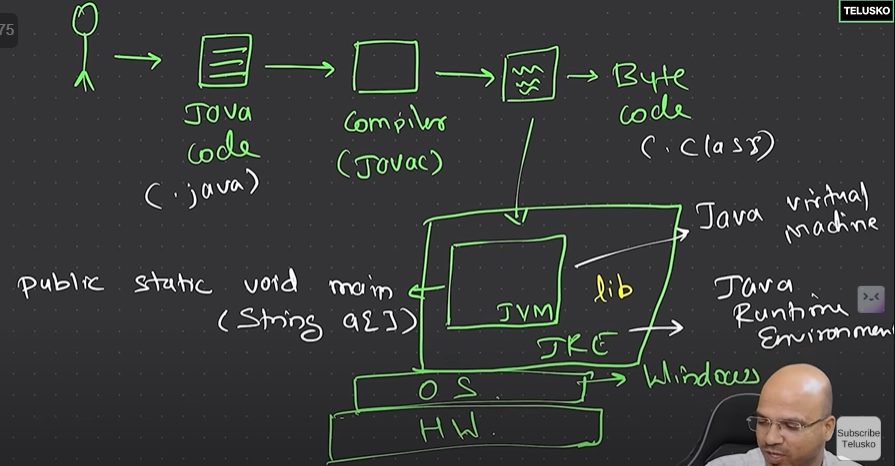 TELUSKO
75
Java
code
(.java)
Compiler
(Javac)
Byte
code
(.class)
Java virtual
Machine
public static void main
(String a[])
JVM
lib
JRE
Java
Runtime
Environmen
OS.
Windows
HW.
Subscribe
Telusko